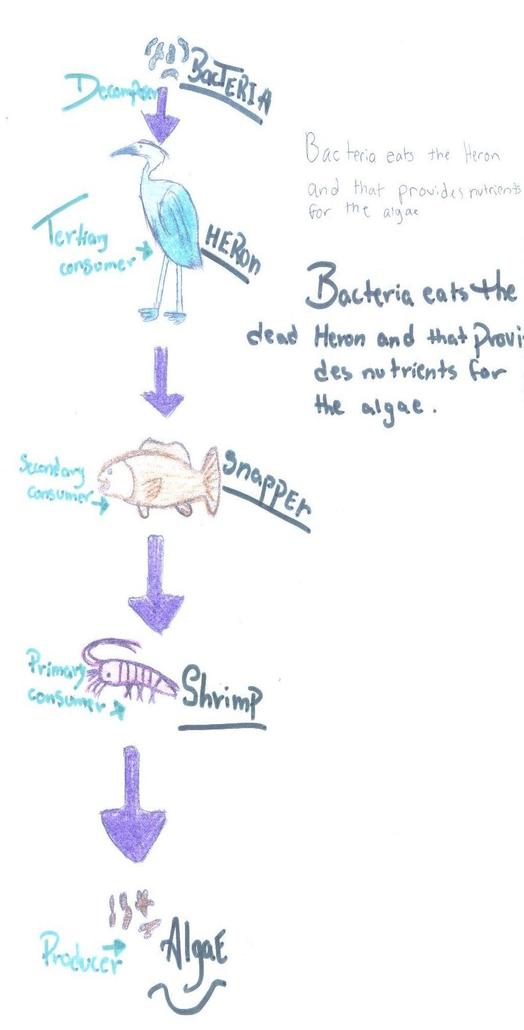 BacTERIA
Decomposer
Bacteria eats the Heron
and that provides nutrients
for the algae
Tertiary
consumer
HERon
Bacteria eats the
dead Heron and that Provi
des nutrients for
the algae.
Secondary
consumer
SnAPPEr
Primary
consumer
Shrimp
Producer
AlgaE